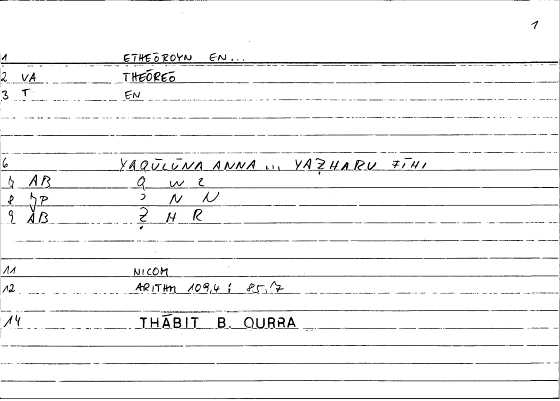 1
1 ETHEŌROYN EN...
2 VA THEŌREŌ
3 T EN
6 YAQŪLŪNA ANNA ... YAẒHARU FĪHI
7 AB Q W L
8 JP ʾ N N
9 AB Ẓ H R
11 NICOM
12 ARITHM 109,4 : 85,17
14 THĀBIT B. QURRA